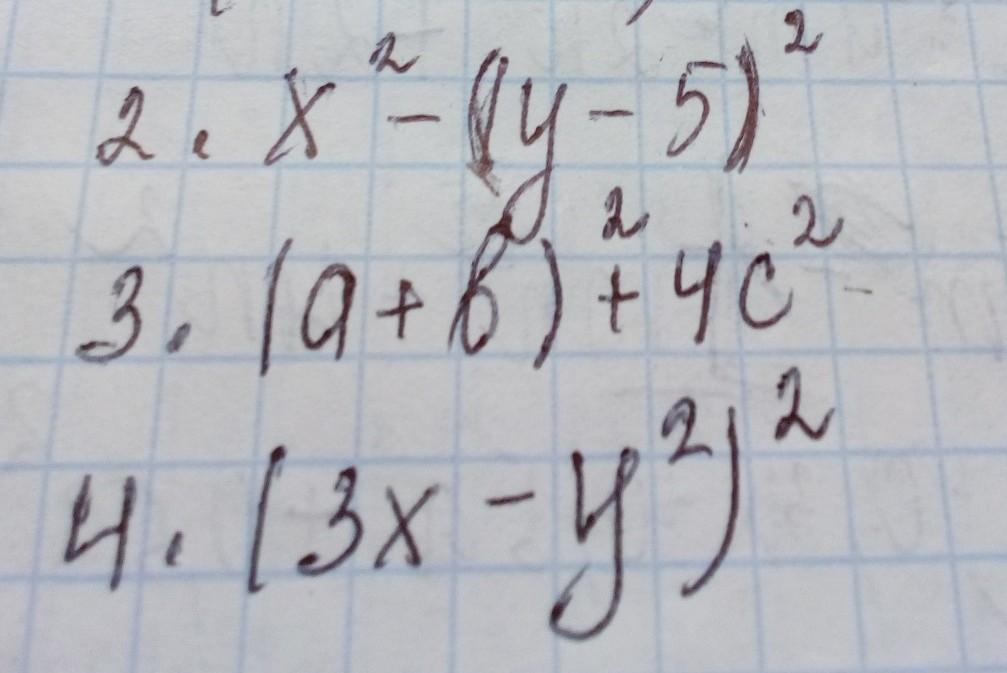 2. x² - (y - 5)²
3. (a + b)² + 4c²
4. (3x - y²)²